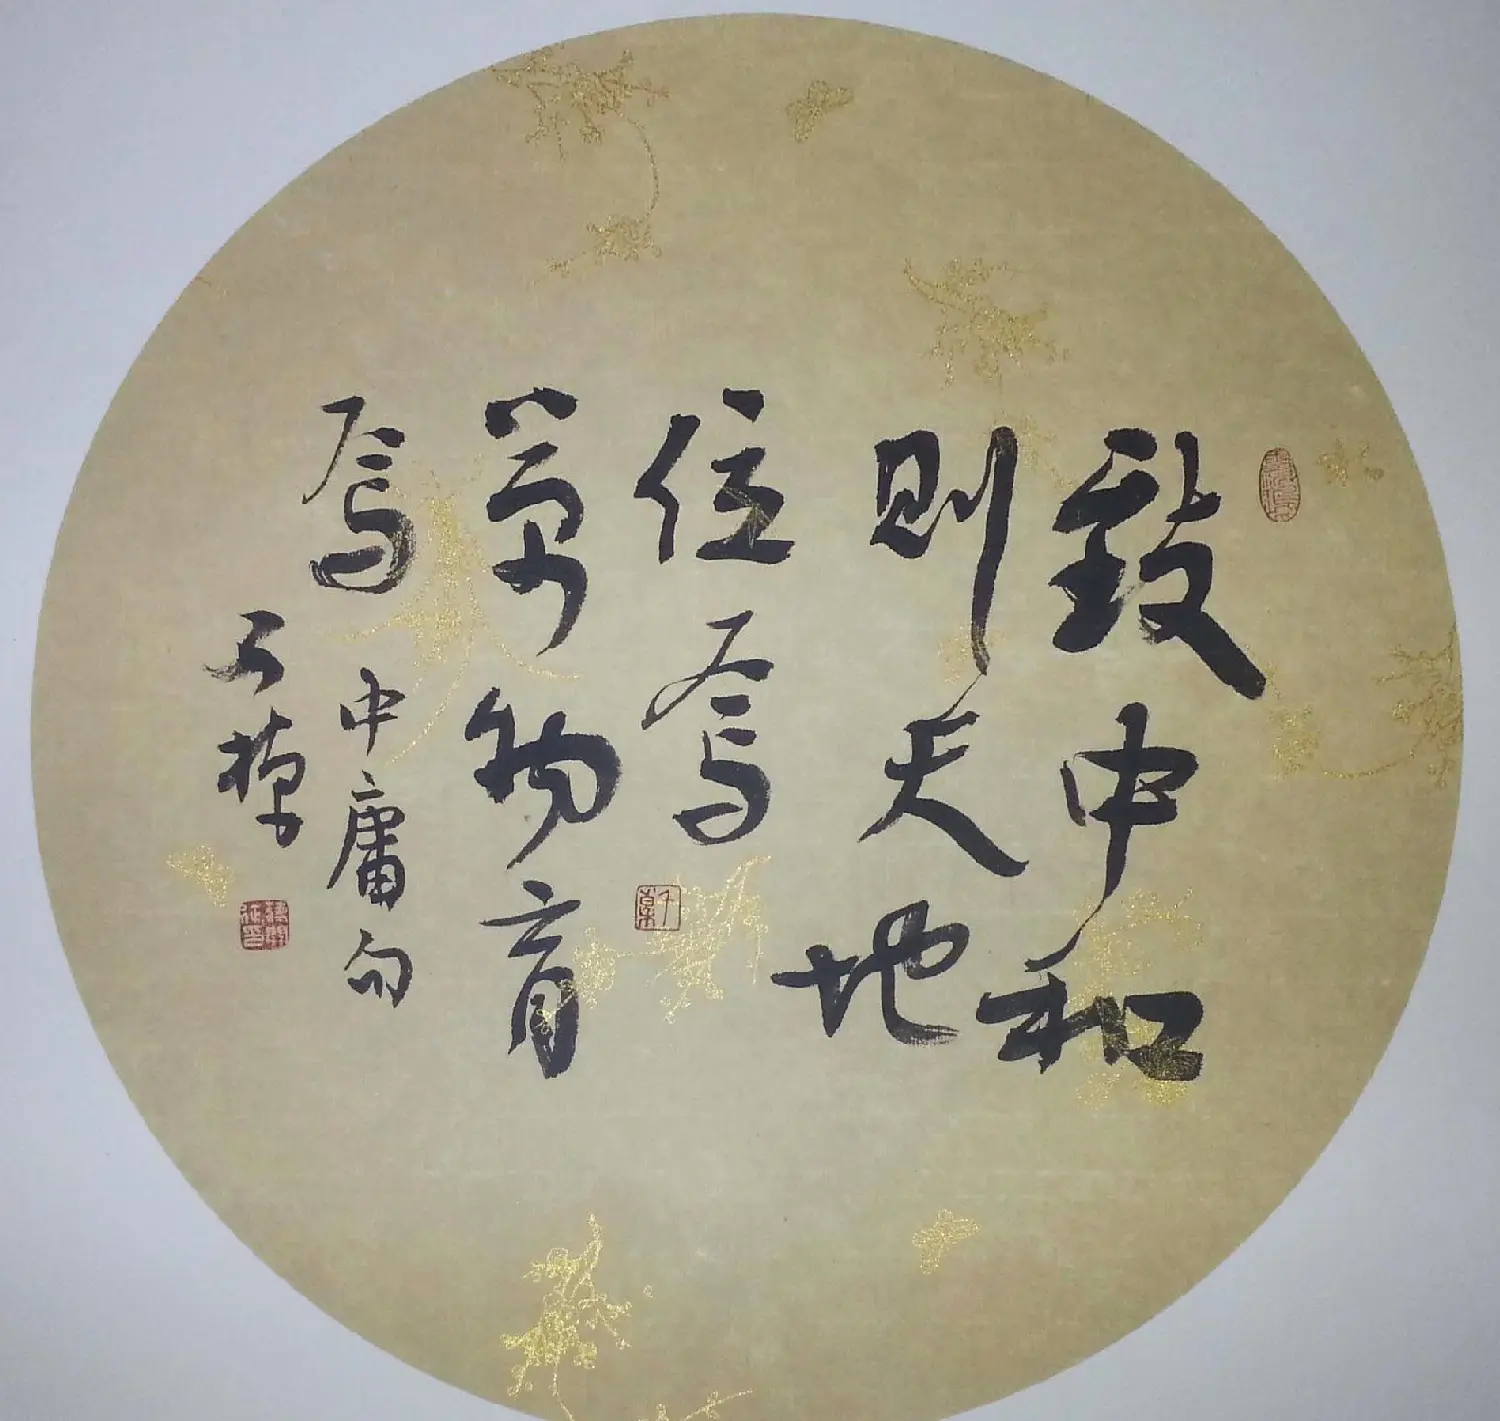 致中和
则天地
位焉
萬物育
焉
中庸句